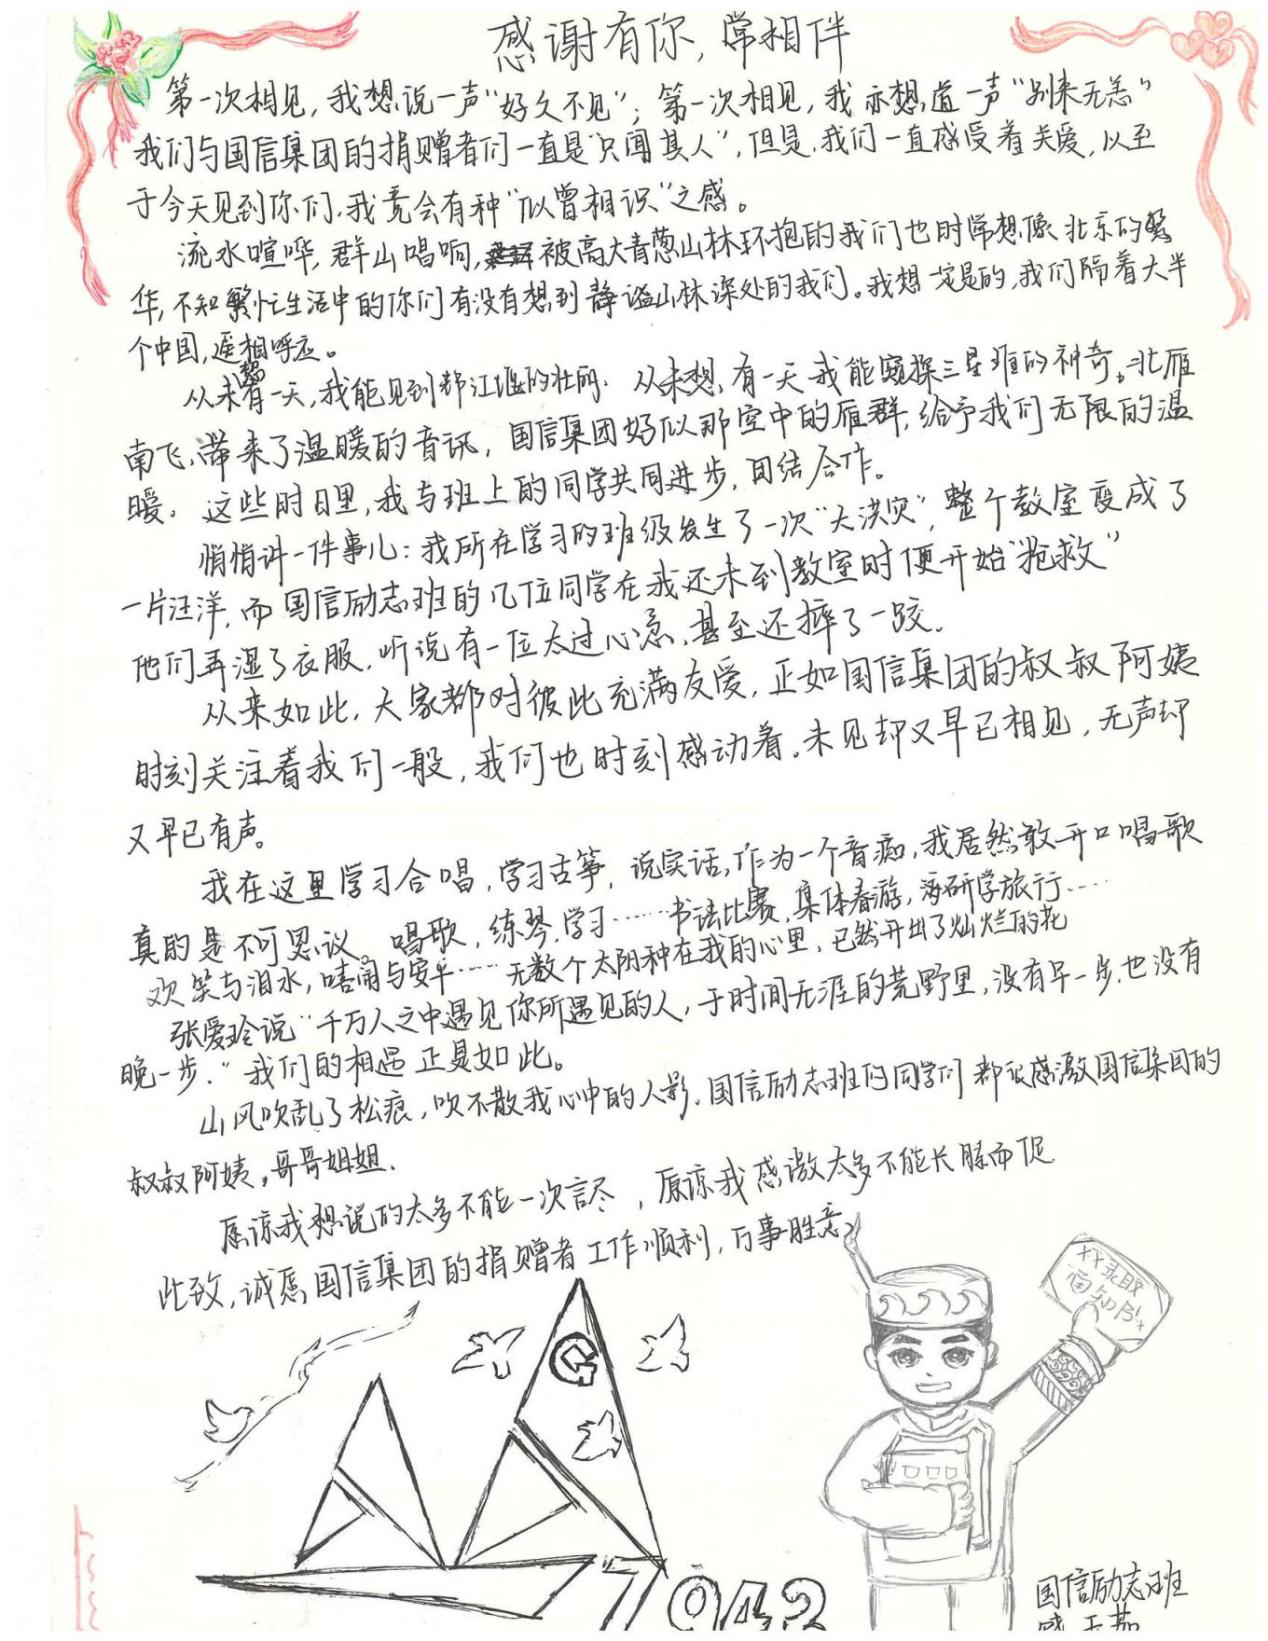 感谢有你,常相伴
第一次相见,我想说一声“好久不见”;第一次相见,我亦想道一声“别来无恙”
我们与国信集团的捐赠者们一直是“只闻其人”,但是,我们一直感受着关爱,以至
于今天见到你们,我竟会有种“似曾相识”之感。
流水喧哗,群山唱响,被高大青葱山林环抱的我们也时常想像北京的繁
华,不知繁忙生活中的你们有没有想到静谧山林深处的我们。我想一定是的,我们隔着大半
个中国,遥相呼应。
从未想有一天,我能见到都江堰的壮丽,从未想,有一天我能窥探三星堆的神奇。北雁
南飞,带来了温暖的音讯,国信集团好似那空中的雁群,给予我们无限的温
暖。这些时日里,我与班上的同学共同进步,团结合作。
悄悄讲一件事儿:我所在学习的班级发生了一次“大洪灾”,整个教室变成了
一片汪洋,而国信励志班的几位同学在我还未到教室时便开始“抢救”
他们弄湿了衣服,听说有一位太过心急,甚至还摔了一跤。
从来如此,大家都对彼此充满友爱,正如国信集团的叔叔阿姨
时刻关注着我们一般,我们也时刻感动着。未见却又早已相见,无声却
又早已有声。
我在这里学习合唱,学习古筝,说实话,作为一个音痴,我居然敢开口唱歌
真的是不可思议。唱歌,练琴,学习……书法比赛,集体春游,研学旅行……
欢笑与泪水,嘻闹与安平……无数个太阳种在我的心里,已然开出了灿烂的花
张爱玲说“千万人之中遇见你所遇见的人,于时间无涯的荒野里,没有早一步,也没有
晚一步.”我们的相遇正是如此。
山风吹乱了松痕,吹不散我心中的人影,国信励志班的同学们都很感激国信集团的
叔叔阿姨,哥哥姐姐.
原谅我想说的太多不能一次言尽,原谅我感激太多不能长膝而促
此致,诚愿国信集团的捐赠者工作顺利,万事胜意
XX录取
通知书
G
7042
国信励志班